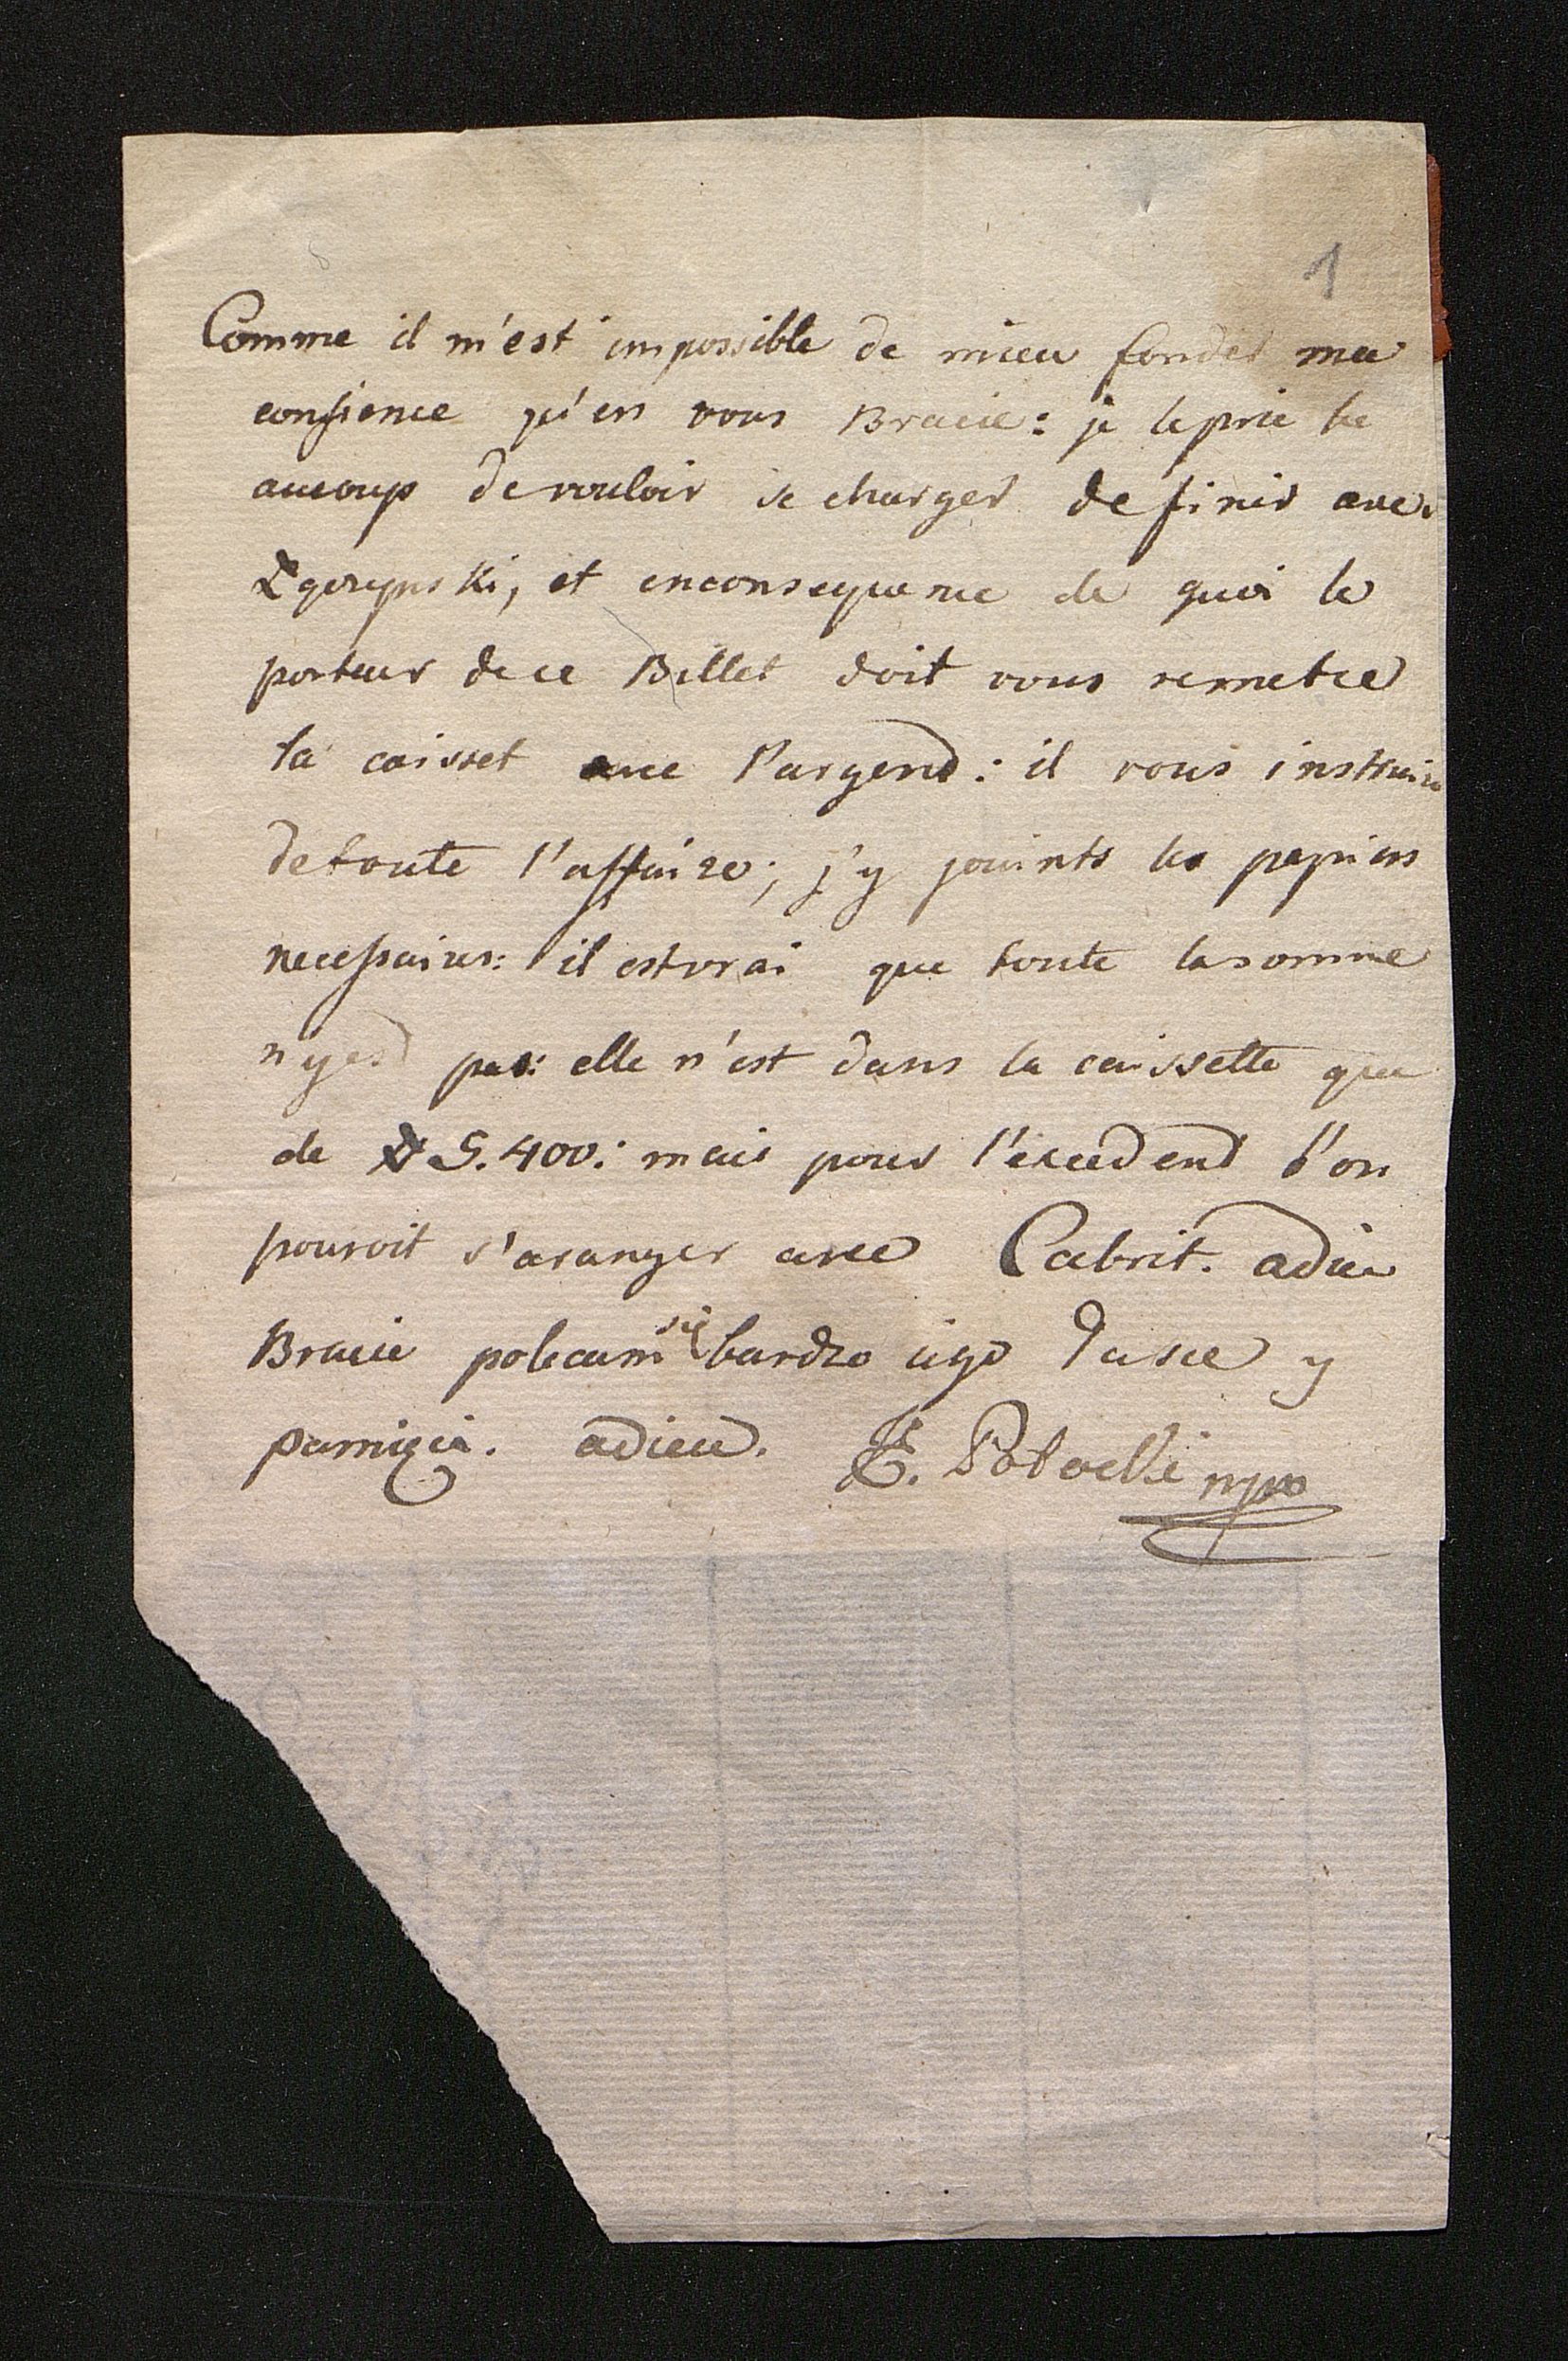 1
Comme il m'est impossible de mieu fonder ma
confience qu'en vous Bracie: je le prie be
aucoup de vouloir se charger de finir avec
Zgorzynski, et enconsequence de quoi le
porteur de ce Billet doit vous remetre
la caisset avec l'argend: il vous instruira
detoute l'affaire; j'y jouints les papiers
necessaires: il est vrai que toute lasomme
n'y est pas: elle n'est dans la caissette que
de # 5.400: mais pour l'excedend l'on
pouroit s'aranger avec Cabrit. adieu
Bracie polecam się bardzo iego Łasce y
pamięci. adieu. Potocki mpo